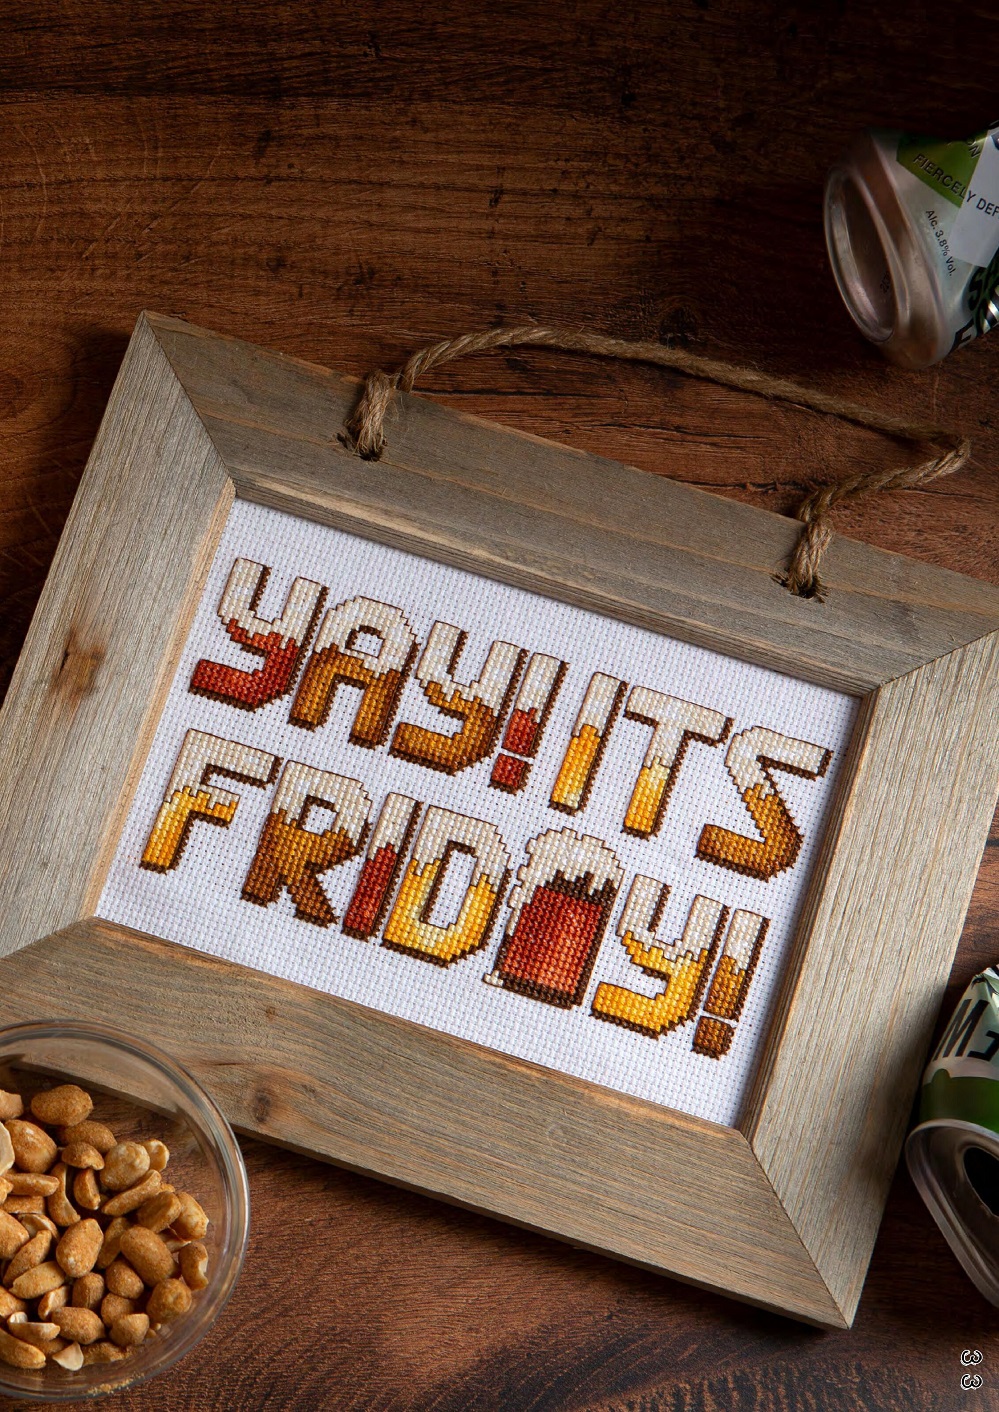 FIERCELY DEF
Alc. 3.8% Vol.
YAY! ITS
FRIDAY!
33